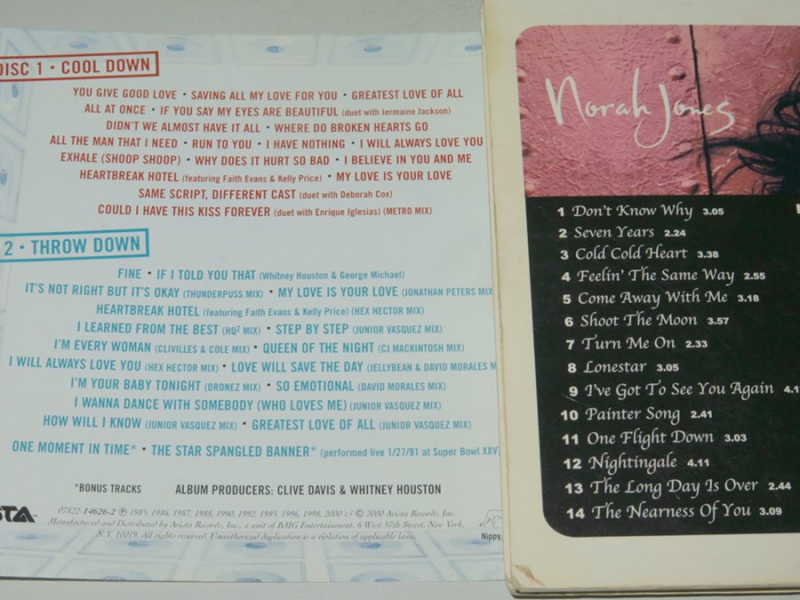 DISC 1 • COOL DOWN
YOU GIVE GOOD LOVE • SAVING ALL MY LOVE FOR YOU • GREATEST LOVE OF ALL
ALL AT ONCE • IF YOU SAY MY EYES ARE BEAUTIFUL (duet with Jermaine Jackson)
DIDN'T WE ALMOST HAVE IT ALL • WHERE DO BROKEN HEARTS GO
ALL THE MAN THAT I NEED • RUN TO YOU • I HAVE NOTHING • I WILL ALWAYS LOVE YOU
EXHALE (SHOOP SHOOP) • WHY DOES IT HURT SO BAD • I BELIEVE IN YOU AND ME
HEARTBREAK HOTEL (featuring Faith Evans & Kelly Price) • MY LOVE IS YOUR LOVE
SAME SCRIPT, DIFFERENT CAST (duet with Deborah Cox)
COULD I HAVE THIS KISS FOREVER (duet with Enrique Iglesias) (METRO MIX)
2 • THROW DOWN
FINE • IF I TOLD YOU THAT (Whitney Houston & George Michael)
IT'S NOT RIGHT BUT IT'S OKAY (THUNDERPUSS MIX) • MY LOVE IS YOUR LOVE (JONATHAN PETERS MIX
HEARTBREAK HOTEL (featuring Faith Evans & Kelly Price) (HEX HECTOR MIX)
I LEARNED FROM THE BEST (HQ² MIX) • STEP BY STEP (JUNIOR VASQUEZ MIX)
I'M EVERY WOMAN (CLIVILLES & COLE MIX) • QUEEN OF THE NIGHT (CJ MACKINTOSH MIX)
I WILL ALWAYS LOVE YOU (HEX HECTOR MIX) • LOVE WILL SAVE THE DAY (JELLYBEAN & DAVID MORALES M
I'M YOUR BABY TONIGHT (DRONEZ MIX) • SO EMOTIONAL (DAVID MORALES MIX)
I WANNA DANCE WITH SOMEBODY (WHO LOVES ME) (JUNIOR VASQUEZ MIX)
HOW WILL I KNOW (JUNIOR VASQUEZ MIX) • GREATEST LOVE OF ALL (JUNIOR VASQUEZ MIX)
ONE MOMENT IN TIME* • THE STAR SPANGLED BANNER* (performed live 1/27/91 at Super Bowl XXV
*BONUS TRACKS ALBUM PRODUCERS: CLIVE DAVIS & WHITNEY HOUSTON
STA
07822-14626-2 ℗ 1985, 1986, 1987, 1988, 1990, 1992, 1995, 1996, 1998, 2000 & © 2000 Arista Records, Inc.
Manufactured and Distributed by Arista Records, Inc., a unit of BMG Entertainment, 6 West 57th Street, New York,
N.Y. 10019. All rights reserved. Unauthorized duplication is a violation of applicable laws.
Nippy,
Norah Jones
1 Don't Know Why 3.05
2 Seven Years 2.24
3 Cold Cold Heart 3.38
4 Feelin' The Same Way 2.55
5 Come Away With Me 3.18
6 Shoot The Moon 3.57
7 Turn Me On 2.33
8 Lonestar 3.05
9 I've Got To See You Again 4.1
10 Painter Song 2.41
11 One Flight Down 3.03
12 Nightingale 4.11
13 The Long Day Is Over 2.44
14 The Nearness Of You 3.09